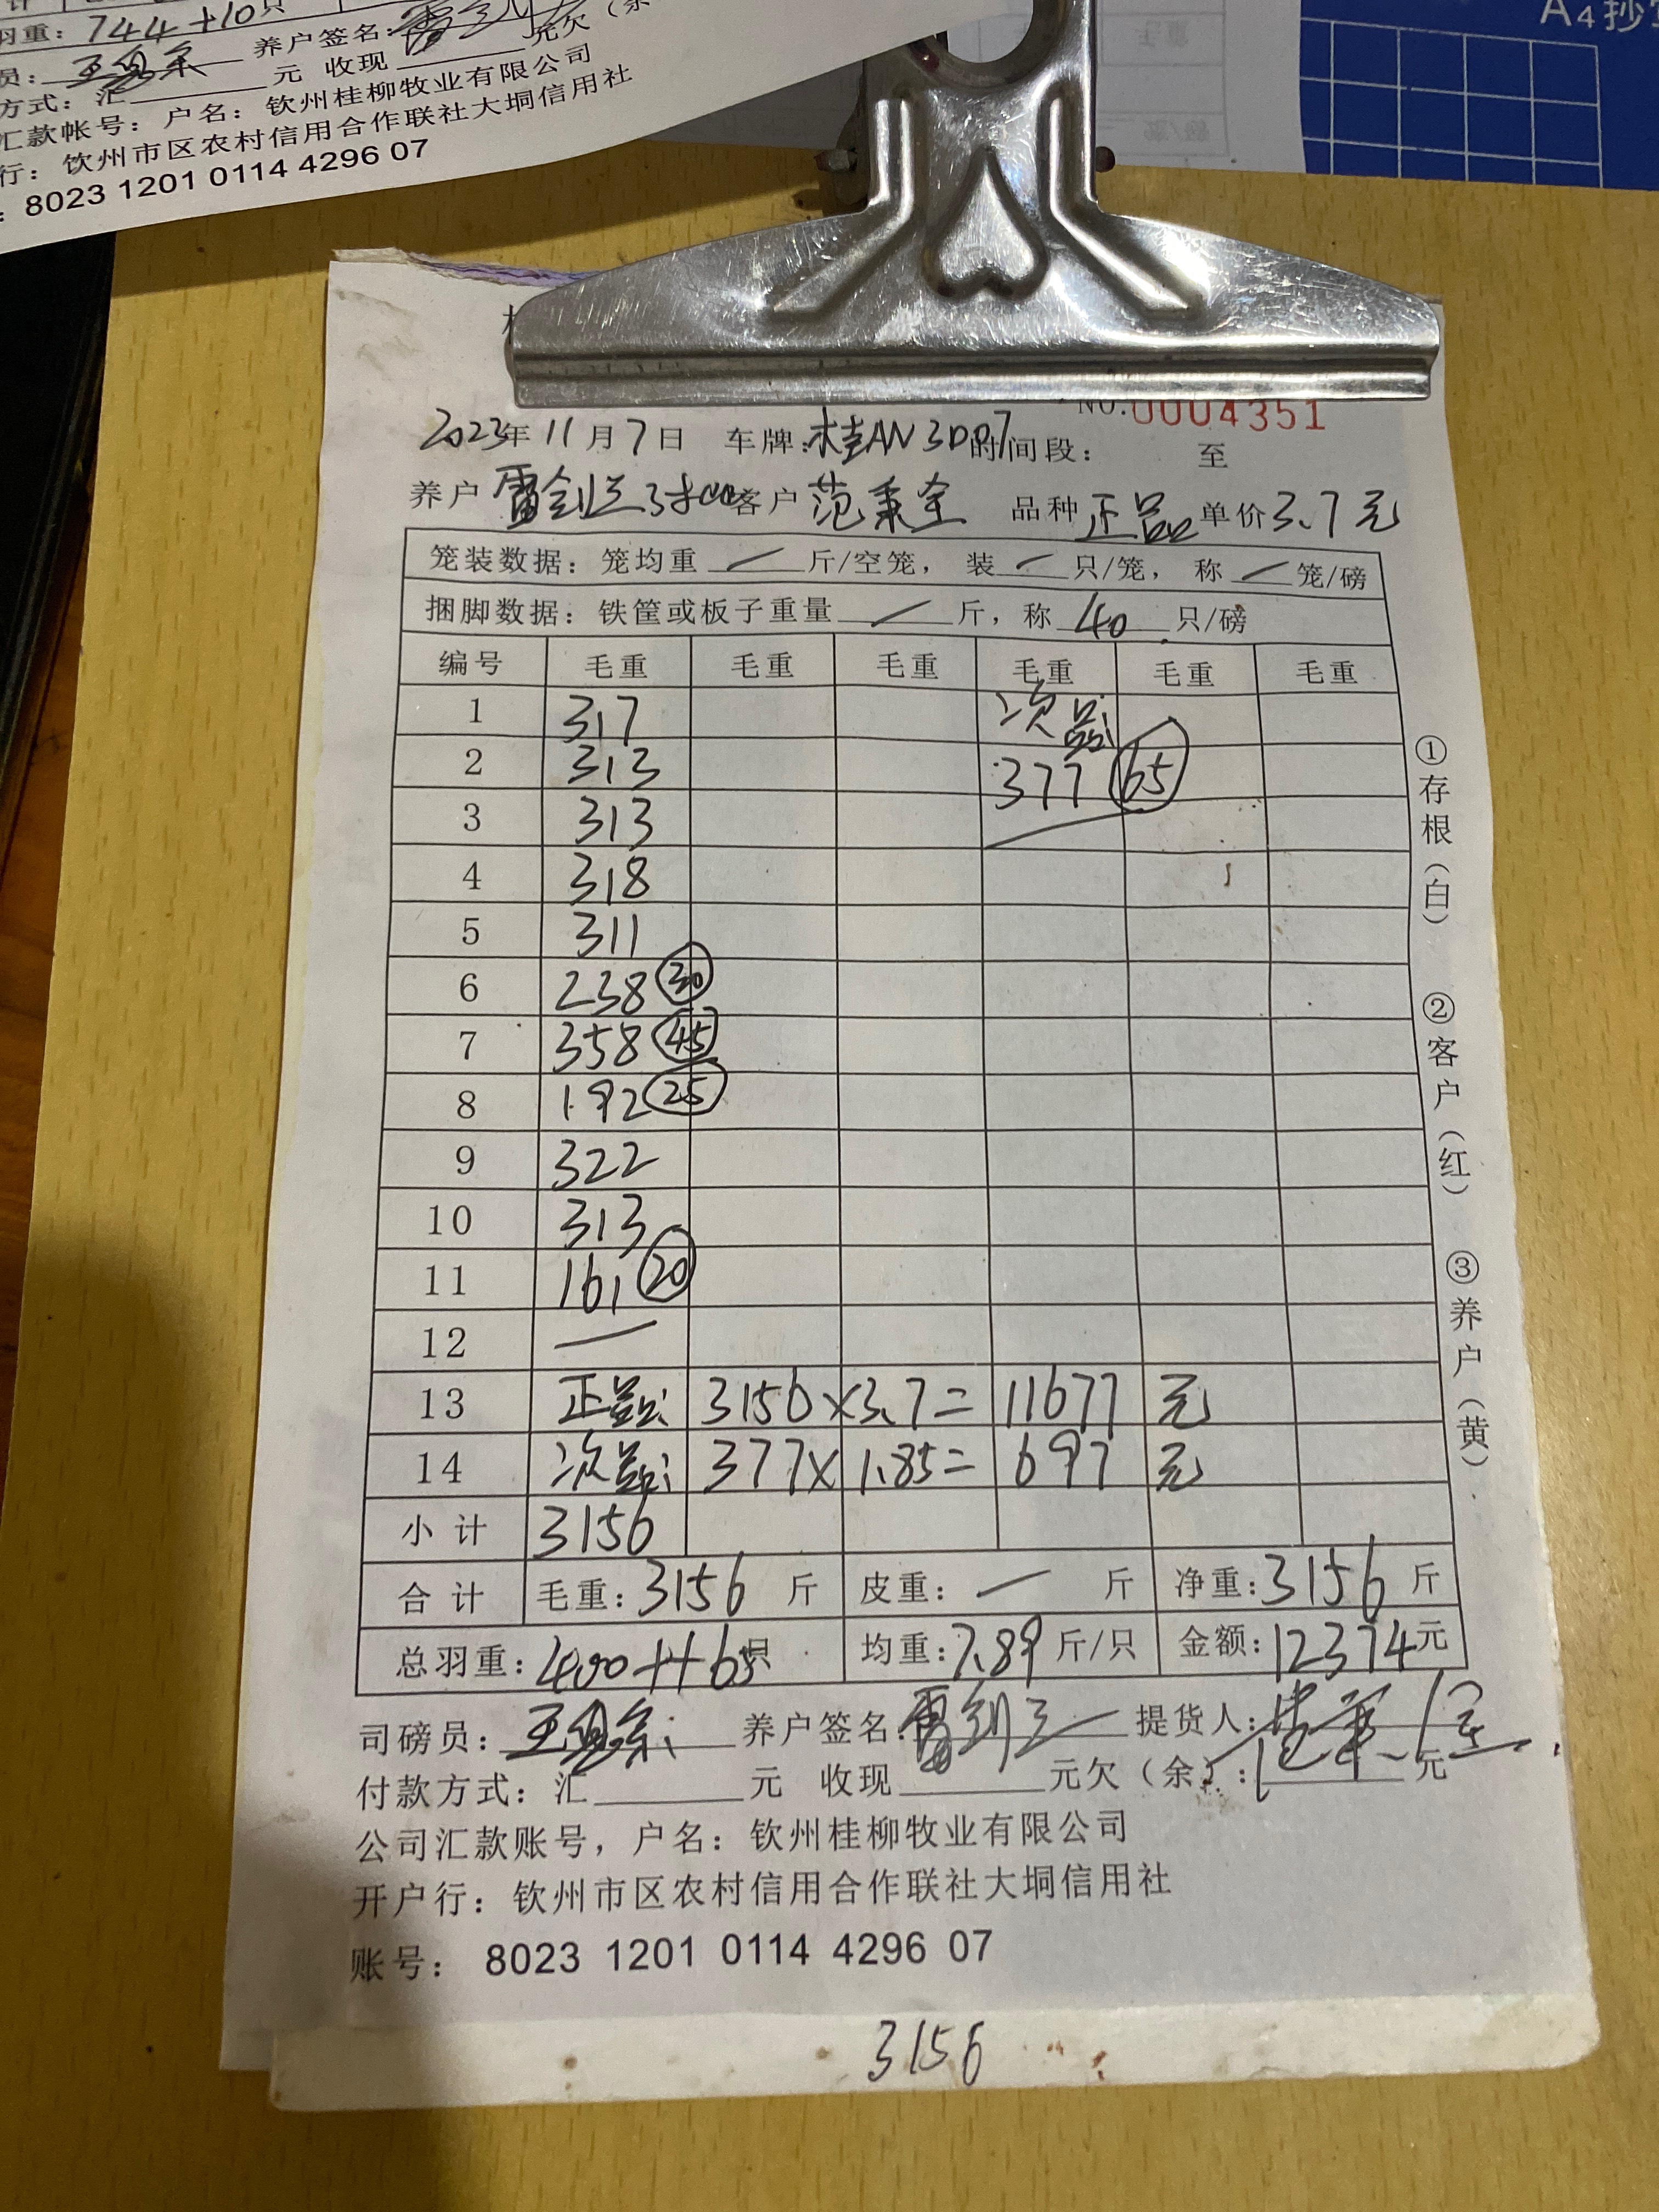 羽重：744+10只
养户签名：
方式：汇 元 收现 元欠（余
汇款帐号：户名：钦州桂柳牧业有限公司
行：钦州市区农村信用合作联社大垌信用社
：8023 1201 0114 4296 07
A4抄
NO.0004351
2023年11月7日 车牌：桂AN3D07 时间段： 至
养户 客户 范秉全 品种 正品 单价 3.7元
笼装数据：笼均重 — 斤/空笼，装 — 只/笼，称 — 笼/磅
捆脚数据：铁筐或板子重量 — 斤，称 40 只/磅
编号 毛重 毛重 毛重 毛重 毛重 毛重
1 317 次品:
2 313 377 65
3 313
4 318
5 311
6 238 30
7 358 45
8 192 25
9 322
10 313
11 161 20
12 —
13 正品: 3156×3.7= 11677 元
14 次品: 377× 1.85= 697 元
小计 3156
合计 毛重：3156 斤 皮重：— 斤 净重：3156 斤
总羽重：400++65只 均重：7.89 斤/只 金额：12374元
司磅员： 养户签名： 提货人：
付款方式：汇 元 收现 元欠（余）： 元
公司汇款账号，户名：钦州桂柳牧业有限公司
开户行：钦州市区农村信用合作联社大垌信用社
账号： 8023 1201 0114 4296 07
①存根（白）
②客户（红）
③养户（黄）
3156